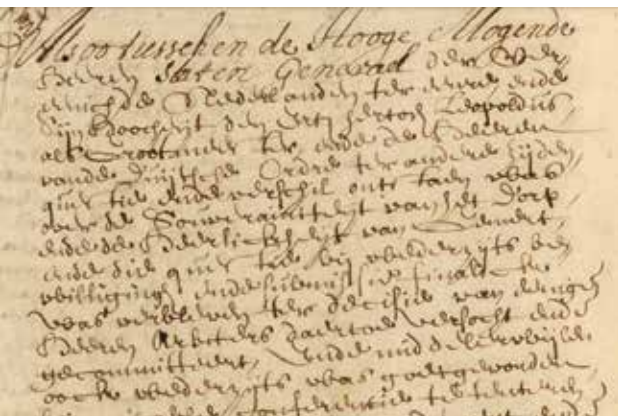 Alsoo tusschen de Hooge Mogende
Heeren Staten Generael der Ver
eenichde Nederlanden ter eenre ende
Sijn Hoocheijt den Ertz hertoch Leopoldus,
als Grootmeester ende de Heeren
vande Duijtsche Ordre ter andere zijden,
questie ende verschil ontstaen was
over de Souverainiteijt van het Dorp
ende de Heerlicheijt van Gemert,
ende die questie bij wederzijts be
williginge ende submissie finalick
was verbleven ter decisie van eenige
Heeren Arbiters daertoe versocht ende
gecommitteert, ende middelerwijlen
oock wederzijts was goetgevonden,
conferentie te tenteren